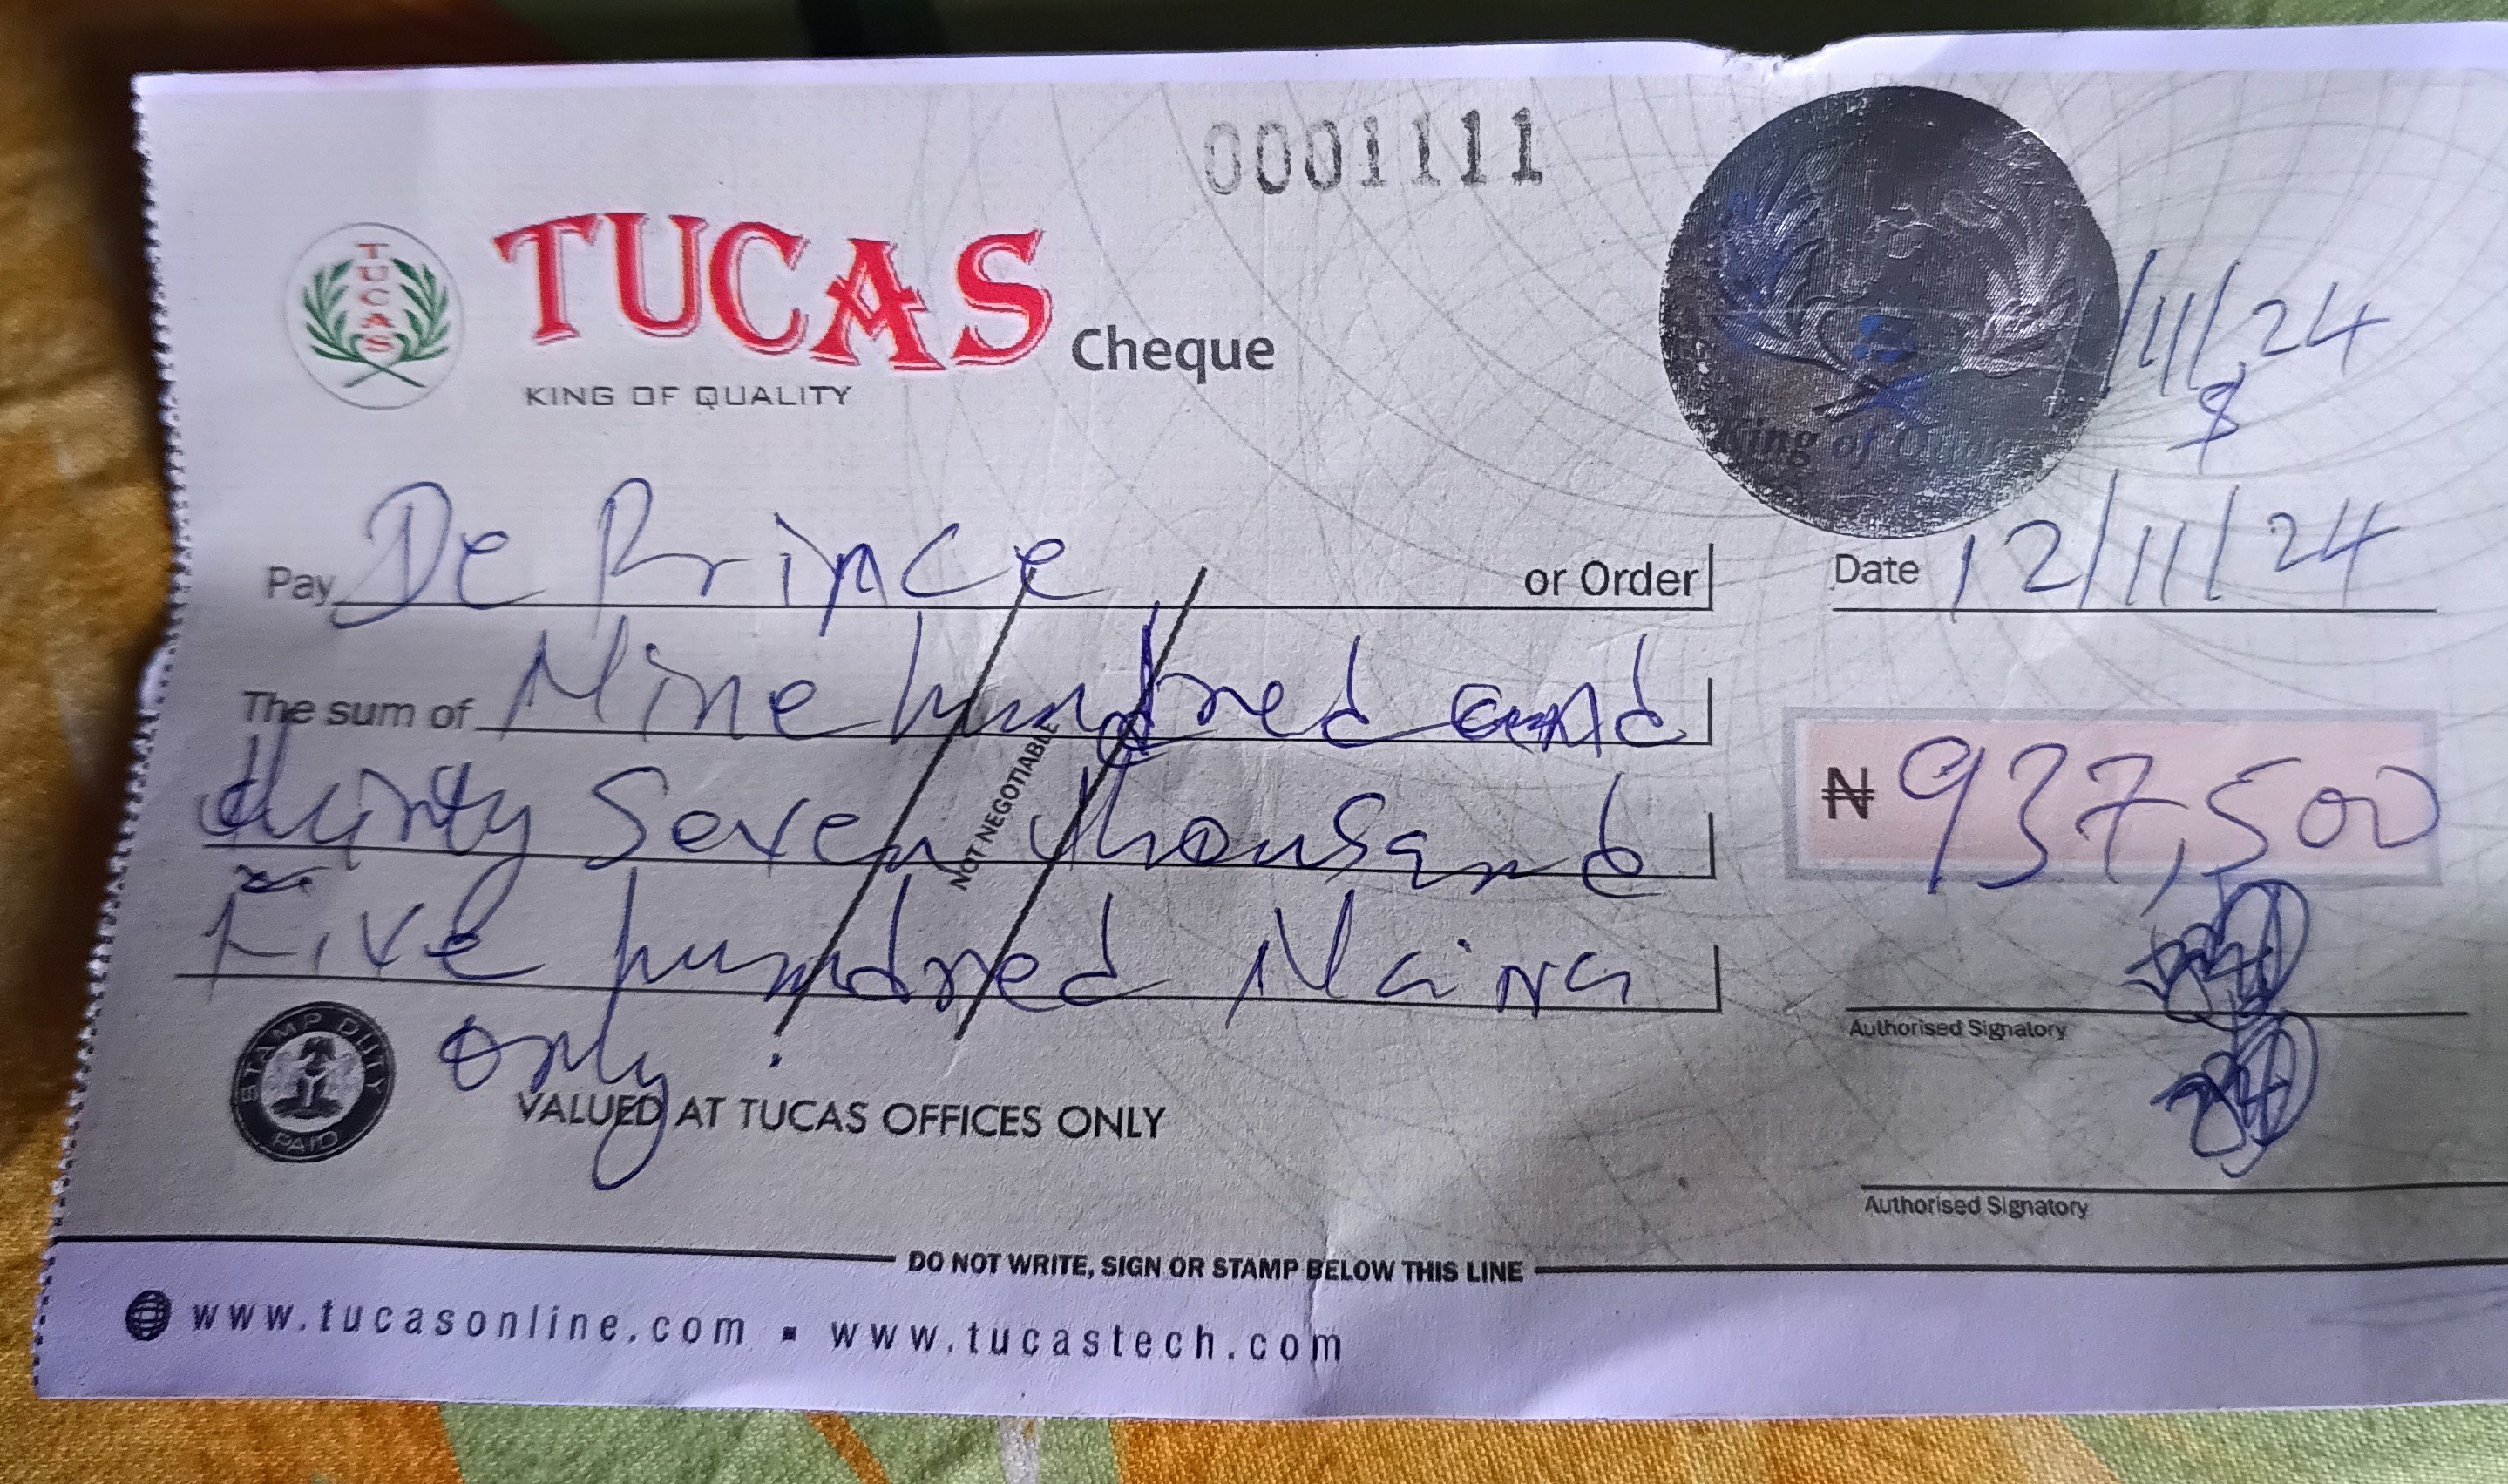 0001111
TUCAS
TUCAS Cheque
KING OF QUALITY
King of
/11/24
&
Pay De Prince or Order
Date 12/11/24
The sum of Nine hundred and
NOT NEGOTIABLE
thirty Seven thousand
₦ 937,500
Five hundred Naira
only.
Authorised Signatory
STAMP DUTY
PAID
VALUED AT TUCAS OFFICES ONLY
Authorised Signatory
DO NOT WRITE, SIGN OR STAMP BELOW THIS LINE
www.tucasonline.com ▪ www.tucastech.com